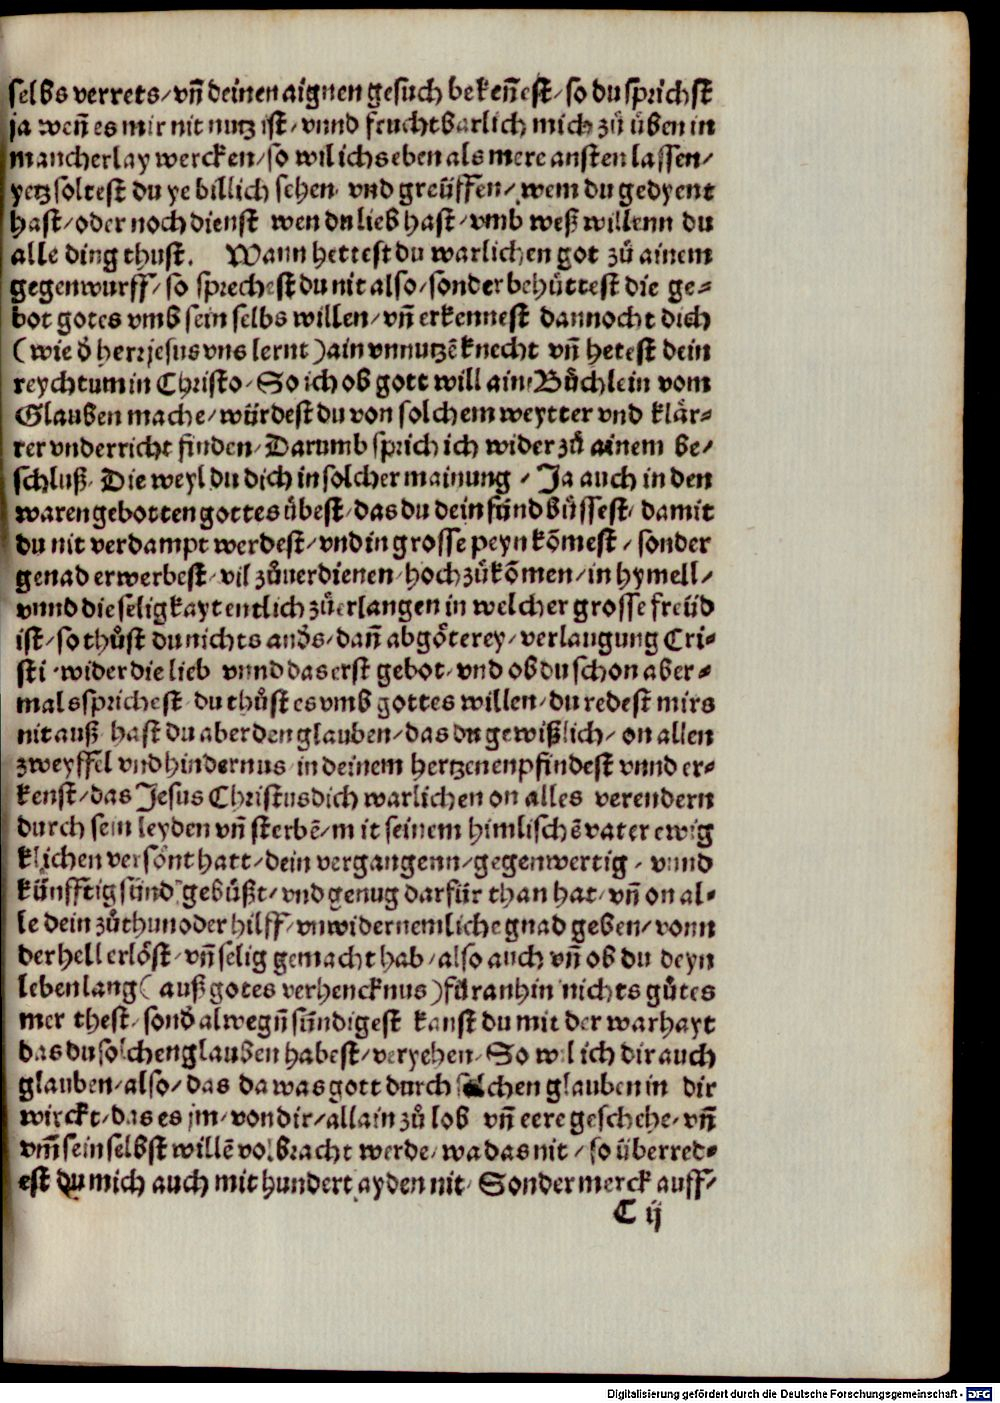 selbs verrets/ vñ deinen aignen gesuch bekeñest/ so du sprichst
ja weñ es mir nit nutz ist/ vnnd fruchtbarlich mich zů üben in
mancherlay wercken/ so wil ichs eben als mere ansten lassen/
yetz soltest du ye billich sehen vnd greüffen/ wem du gedyent
hast/ oder noch dienst wen du lieb hast/ vmb weß willenn du
alle ding thust. Wann hettest du warlichen got zů ainem
gegenwurff/ so sprechest du nit also/ sonder behüttest die ge-
bot gotes vmb sein selbs willen/ vñ erkennest dannocht dich
(wie d̄ herr jesus vns lernt) ain vnnutzē knecht vñ hetest dein
reychtum in Christo/ So ich ob gott will ain Bůchlein vom
Glauben mache/ würdest du von solchem weytter vnd klär-
rer vnderricht finden/ Darumb sprich ich wider zů ainem be/
schluß/ Die weyl du dich in solcher mainung/ Ja auch in den
waren gebotten gottes übest/ das du dein sünd büssest/ damit
du nit verdampt werdest/ vnd in grosse peyn kōmest/ sonder
genad erwerbest/ vil zůuerdienen/ hoch zůkōmen/ in hymell/
vnnd die seligkayt entlich zůerlangen in welcher grosse freüd
ist/ so thůst du nichts and̄s/ dañ abgötterey/ verlaugung Cri-
sti/ wider die lieb vnnd das erst gebot/ vnd ob du schon aber-
mals sprichest du thůst es vmb gottes willen/ du redest mirs
nit auß hast du aber den glauben/ das du gewißlich/ on allen
zweyffel vnd hindernus in deinem hertzen enpfindest vnnd er-
kenst/ das Jesus Christus dich warlichen on alles verendern
durch sein leyden vñ sterbē/ mit seinem himlischē vater ewig
klichen versönt hatt/ dein vergangenn/ gegenwertig/ vnnd
künfftig sünd gebüßt/ vnd genug darfür than hat/ vñ on al-
le dein zůthun oder hilff/ vnwidernemliche gnad geben/ vonn
der hell erlöst/ vñ selig gemacht hab/ also auch vñ ob du deyn
lebenlang (auß gotes verhencknus) füranhin nichts gůtes
mer thest/ sond̄ alwegñ sündigest kanst du mit der warhayt
das du solchen glauben habest/ veryehen/ So wil ich dir auch
glauben/ also/ das da was gott durch solchen glauben in dir
wirckt/ das es jm/ von dir/ allain zů lob vñ eere geschehe/ vñ
vm̄ sein selbst willē volbracht werde/ wa das nit/ so überred-
est du mich auch mit hundert ayden nit/ Sonder merck auff/
C ij
Digitalisierung gefördert durch die Deutsche Forschungsgemeinschaft - DFG